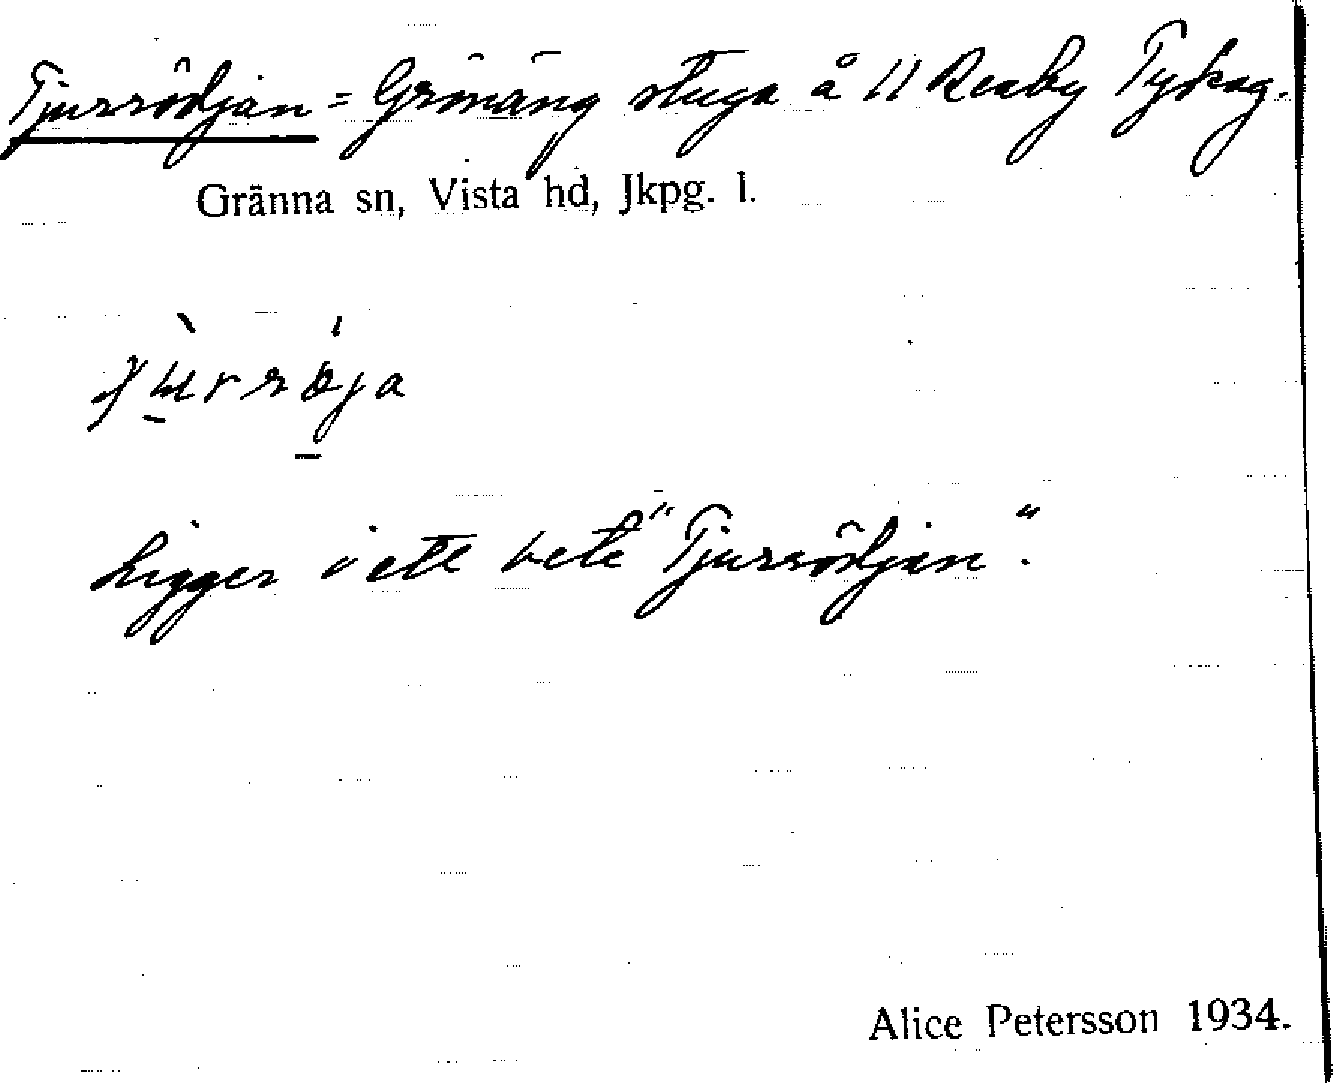 Tjurrödjan = Grönäng stuga å 11 Reaby Tykag.
Gränna sn, Vista hd, Jkpg. l.
Ligger i ett bete "Tjurrödjan".
Alice Petersson 1934.